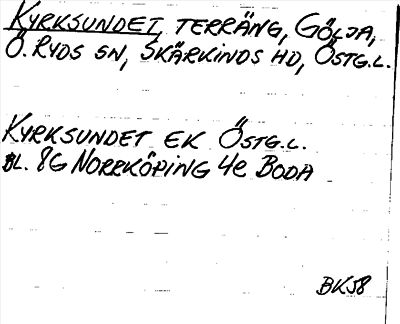 KYRKSUNDET, TERRÄNG, GÖLJA,
Ö. RYDS SN, SKÄRKINDS HD, ÖSTG.L.
KYRKSUNDET EK ÖSTG.L.
BL. 8G NORRKÖPING 4e BODA
BK58